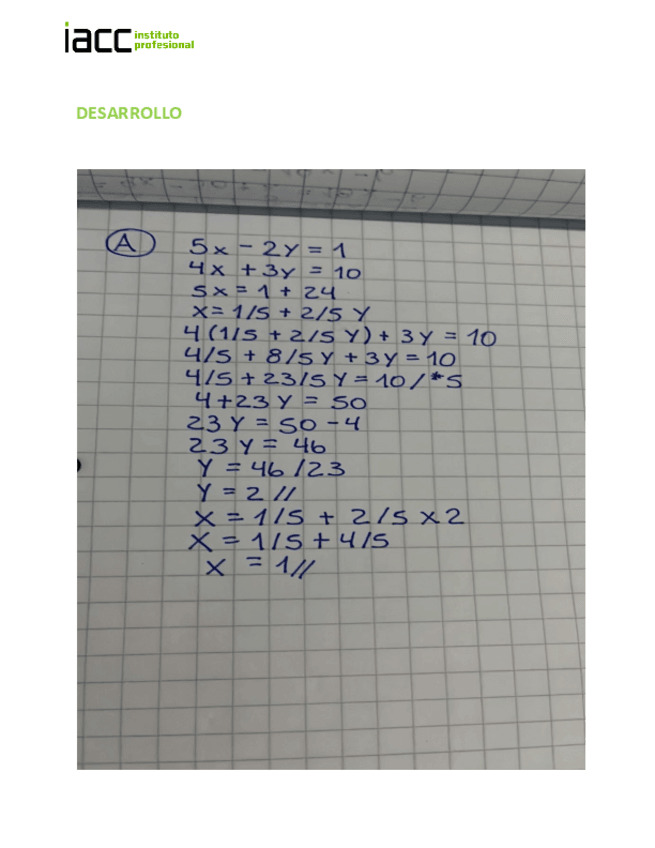 iacc instituto
profesional
DESARROLLO
A
5x - 2y = 1
4x + 3y = 10
5x = 1 + 24
x = 1/5 + 2/5 Y
4 (1/5 + 2/5 Y) + 3Y = 10
4/5 + 8/5 Y + 3Y = 10
4/5 + 23/5 Y = 10 / *5
4 + 23 Y = 50
23 Y = 50 - 4
23 Y = 46
Y = 46 / 23
Y = 2 //
X = 1/5 + 2/5 x 2
X = 1/5 + 4/5
X = 1//